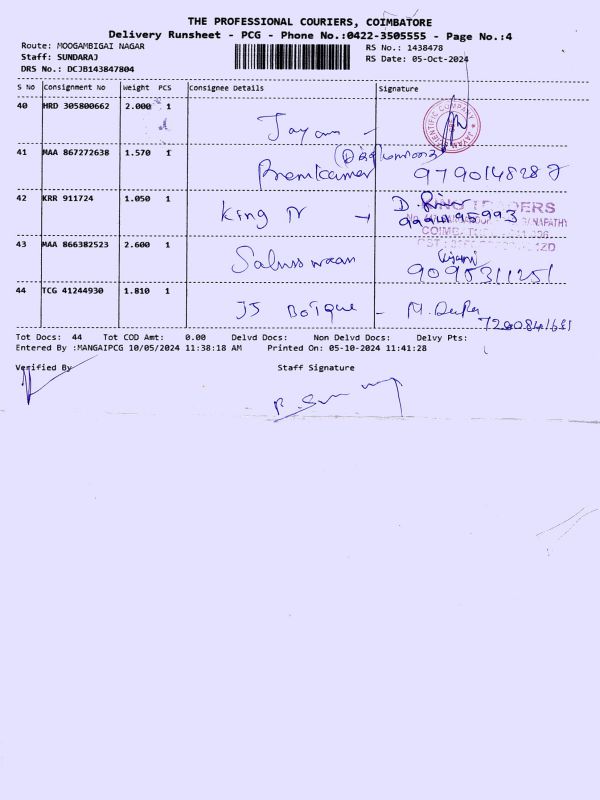 THE PROFESSIONAL COURIERS, COIMBATORE
Delivery Runsheet - PCG - Phone No.:0422-3505555 - Page No.:4
Route: MOOGAMBIGAI NAGAR
RS No.: 1438478
Staff: SUNDARAJ
RS Date: 05-Oct-2024
DRS No.: DCJB143847804
S No Consignment No Weight PCS Consignee Details Signature
40 HRD 305800662 2.000 1
Jayam -
41 MAA 867272638 1.570 1
Premkumar 9790148287
42 KRR 911724 1.050 1
King Tr → 9994495993
43 MAA 866382523 2.600 1
9095311251
44 TCG 41244930 1.810 1
JS Botque -
Tot Docs: 44 Tot COD Amt: 0.00 Delvd Docs: Non Delvd Docs: Delvy Pts:
Entered By :MANGAIPCG 10/05/2024 11:38:18 AM Printed On: 05-10-2024 11:41:28
Verified By Staff Signature